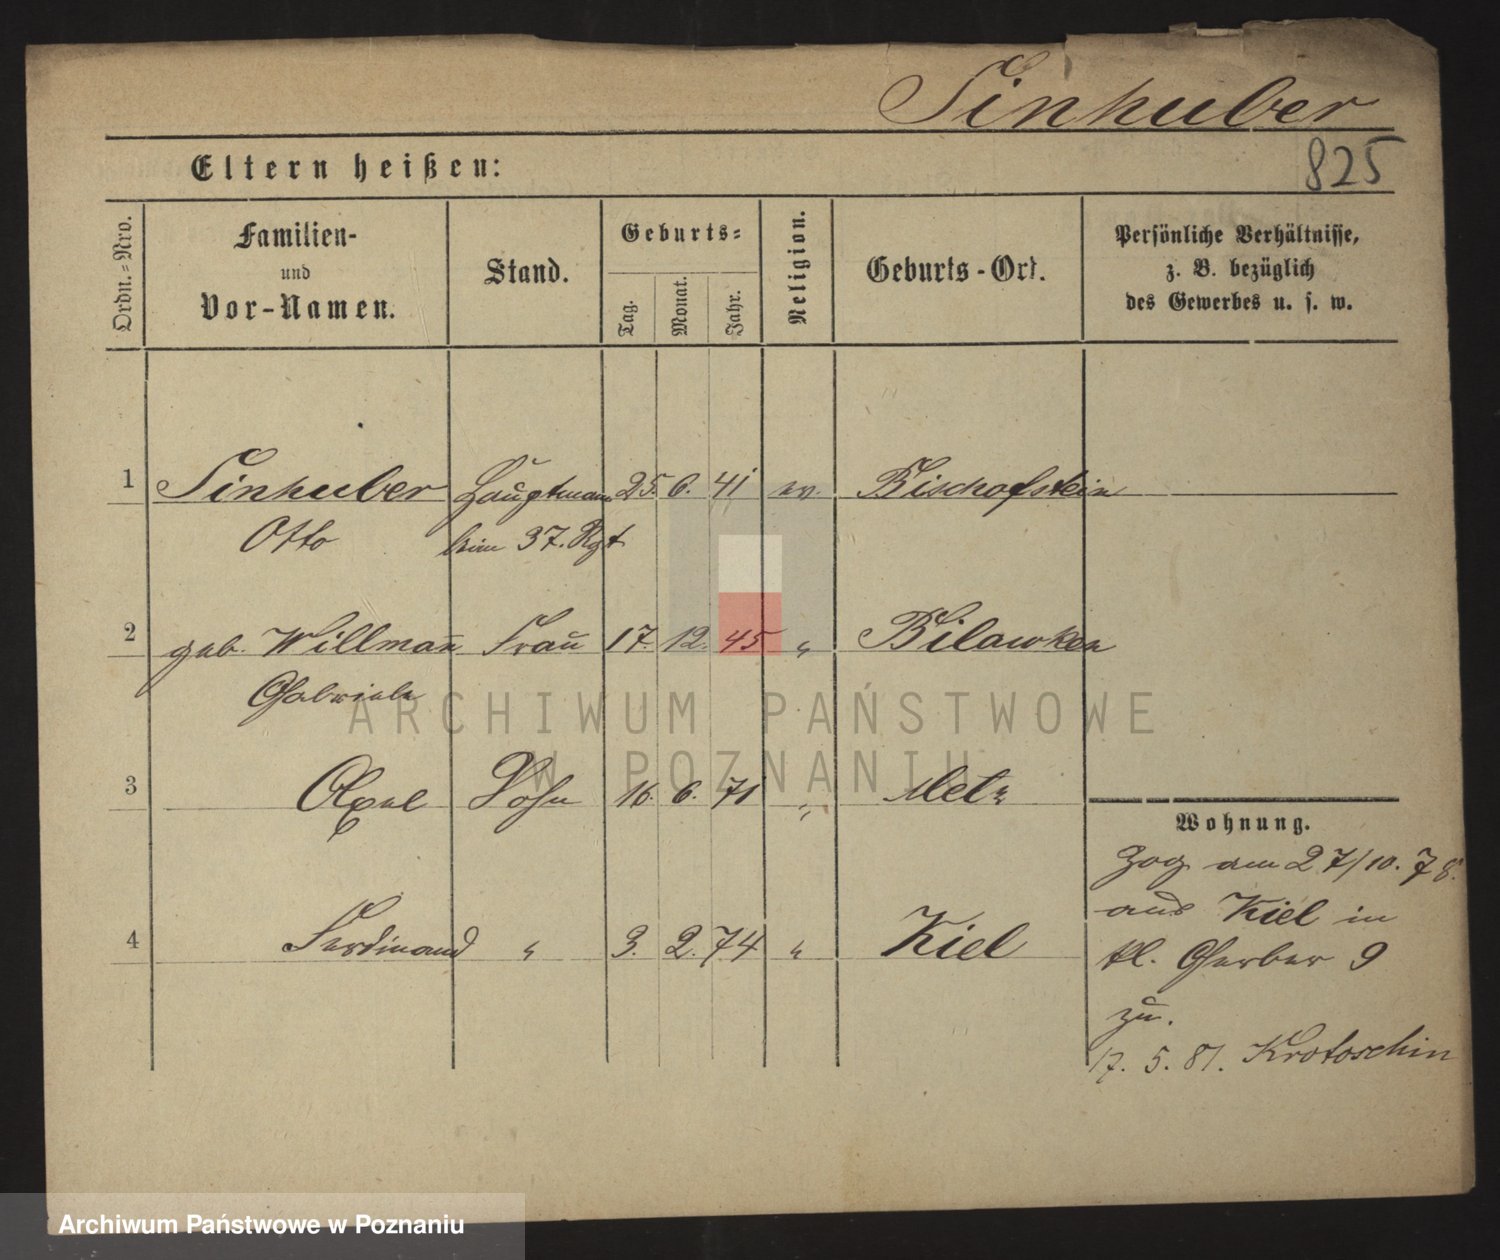 Sinhuber
825
Eltern heißen:
Ordn.-Nro.
Familien-
und
Vor-Namen.
Stand.
Geburts-
Tag.
Monat.
Jahr.
Religion.
Geburts-Ort.
Persönliche Verhältnisse,
z. B. bezüglich
des Gewerbes u. s. w.
1 Sinhuber Hauptmann 25. 6. 41 ev. Bischofstein
Otto beim 37. Rgt
2 geb. Willmañ Frau 17. 12. 45 " Bilawken
Gabriele
3 Axel Sohn 16. 6. 71 " Metz
Wohnung.
Zog am 27/10. 78.
aus Kiel in
4 Ferdinand " 3. 2. 74 " Kiel
kl. Gerber 9
zu.
17. 5. 81. Krotoschin
ARCHIWUM PAŃSTWOWE
W POZNANIU
Archiwum Państwowe w Poznaniu